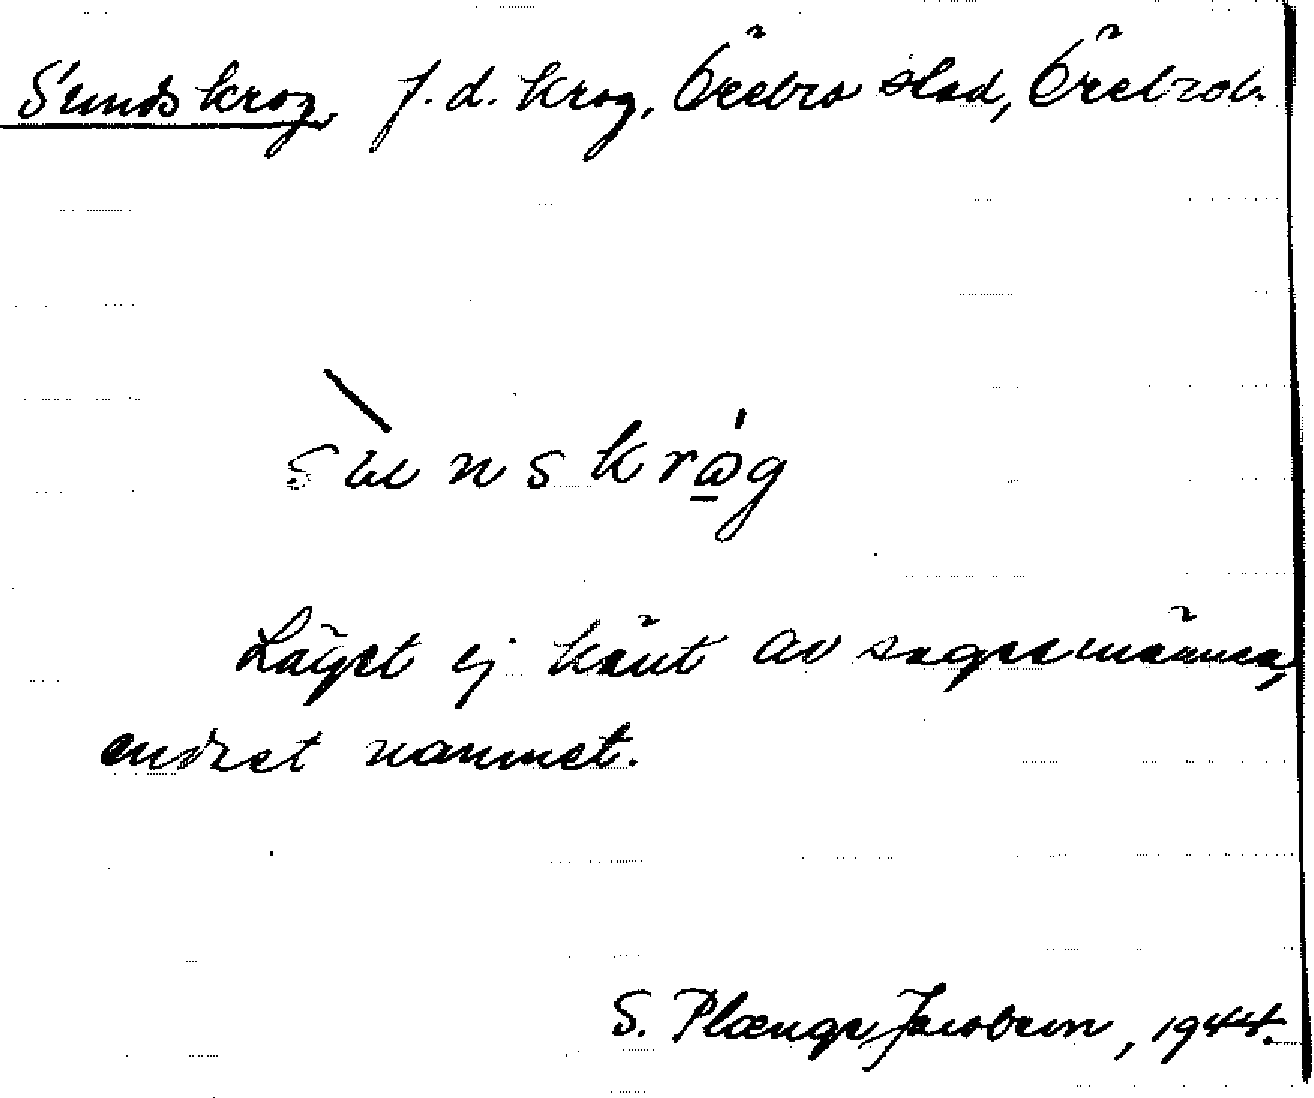 Sundskrog, f.d. krog, Örebro stad, Örebro l.
sunskrog
Läget ej känt av sagesmännen,
endast namnet.
S. Plænge Jacobson, 1944.